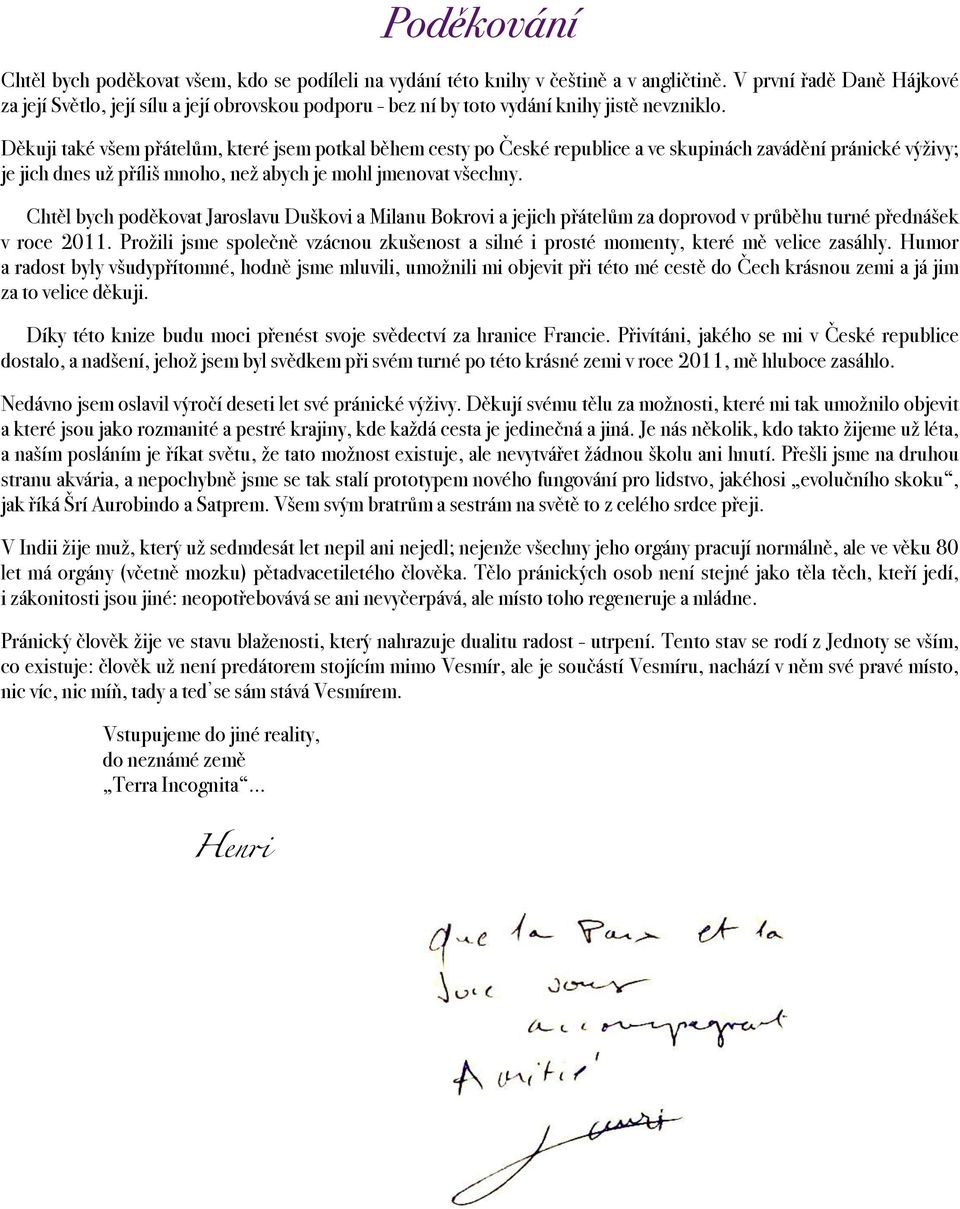 Poděkování
Chtěl bych poděkovat všem, kdo se podíleli na vydání této knihy v češtině a v angličtině. V první řadě Daně Hájkové
za její Světlo, její sílu a její obrovskou podporu - bez ní by toto vydání knihy jistě nevzniklo.
Děkuji také všem přátelům, které jsem potkal během cesty po České republice a ve skupinách zavádění pránické výživy;
je jich dnes už příliš mnoho, než abych je mohl jmenovat všechny.
Chtěl bych poděkovat Jaroslavu Duškovi a Milanu Bokrovi a jejich přátelům za doprovod v průběhu turné přednášek
v roce 2011. Prožili jsme společně vzácnou zkušenost a silné i prosté momenty, které mě velice zasáhly. Humor
a radost byly všudypřítomné, hodně jsme mluvili, umožnili mi objevit při této mé cestě do Čech krásnou zemi a já jim
za to velice děkuji.
Díky této knize budu moci přenést svoje svědectví za hranice Francie. Přivítáni, jakého se mi v České republice
dostalo, a nadšení, jehož jsem byl svědkem při svém turné po této krásné zemi v roce 2011, mě hluboce zasáhlo.
Nedávno jsem oslavil výročí deseti let své pránické výživy. Děkují svému tělu za možnosti, které mi tak umožnilo objevit
a které jsou jako rozmanité a pestré krajiny, kde každá cesta je jedinečná a jiná. Je nás několik, kdo takto žijeme už léta,
a naším posláním je říkat světu, že tato možnost existuje, ale nevytvářet žádnou školu ani hnutí. Přešli jsme na druhou
stranu akvária, a nepochybně jsme se tak stalí prototypem nového fungování pro lidstvo, jakéhosi „evolučního skoku“,
jak říká Šrí Aurobindo a Satprem. Všem svým bratrům a sestrám na světě to z celého srdce přeji.
V Indii žije muž, který už sedmdesát let nepil ani nejedl; nejenže všechny jeho orgány pracují normálně, ale ve věku 80
let má orgány (včetně mozku) pětadvacetiletého člověka. Tělo pránických osob není stejné jako těla těch, kteří jedí,
i zákonitosti jsou jiné: neopotřebovává se ani nevyčerpává, ale místo toho regeneruje a mládne.
Pránický člověk žije ve stavu blaženosti, který nahrazuje dualitu radost - utrpení. Tento stav se rodí z Jednoty se vším,
co existuje: člověk už není predátorem stojícím mimo Vesmír, ale je součástí Vesmíru, nachází v něm své pravé místo,
nic víc, nic míň, tady a teď se sám stává Vesmírem.
Vstupujeme do jiné reality,
do neznámé země
„Terra Incognita“...
Henri
Que la Paix et la
Joie vous
accompagnent
Amitié
Henri